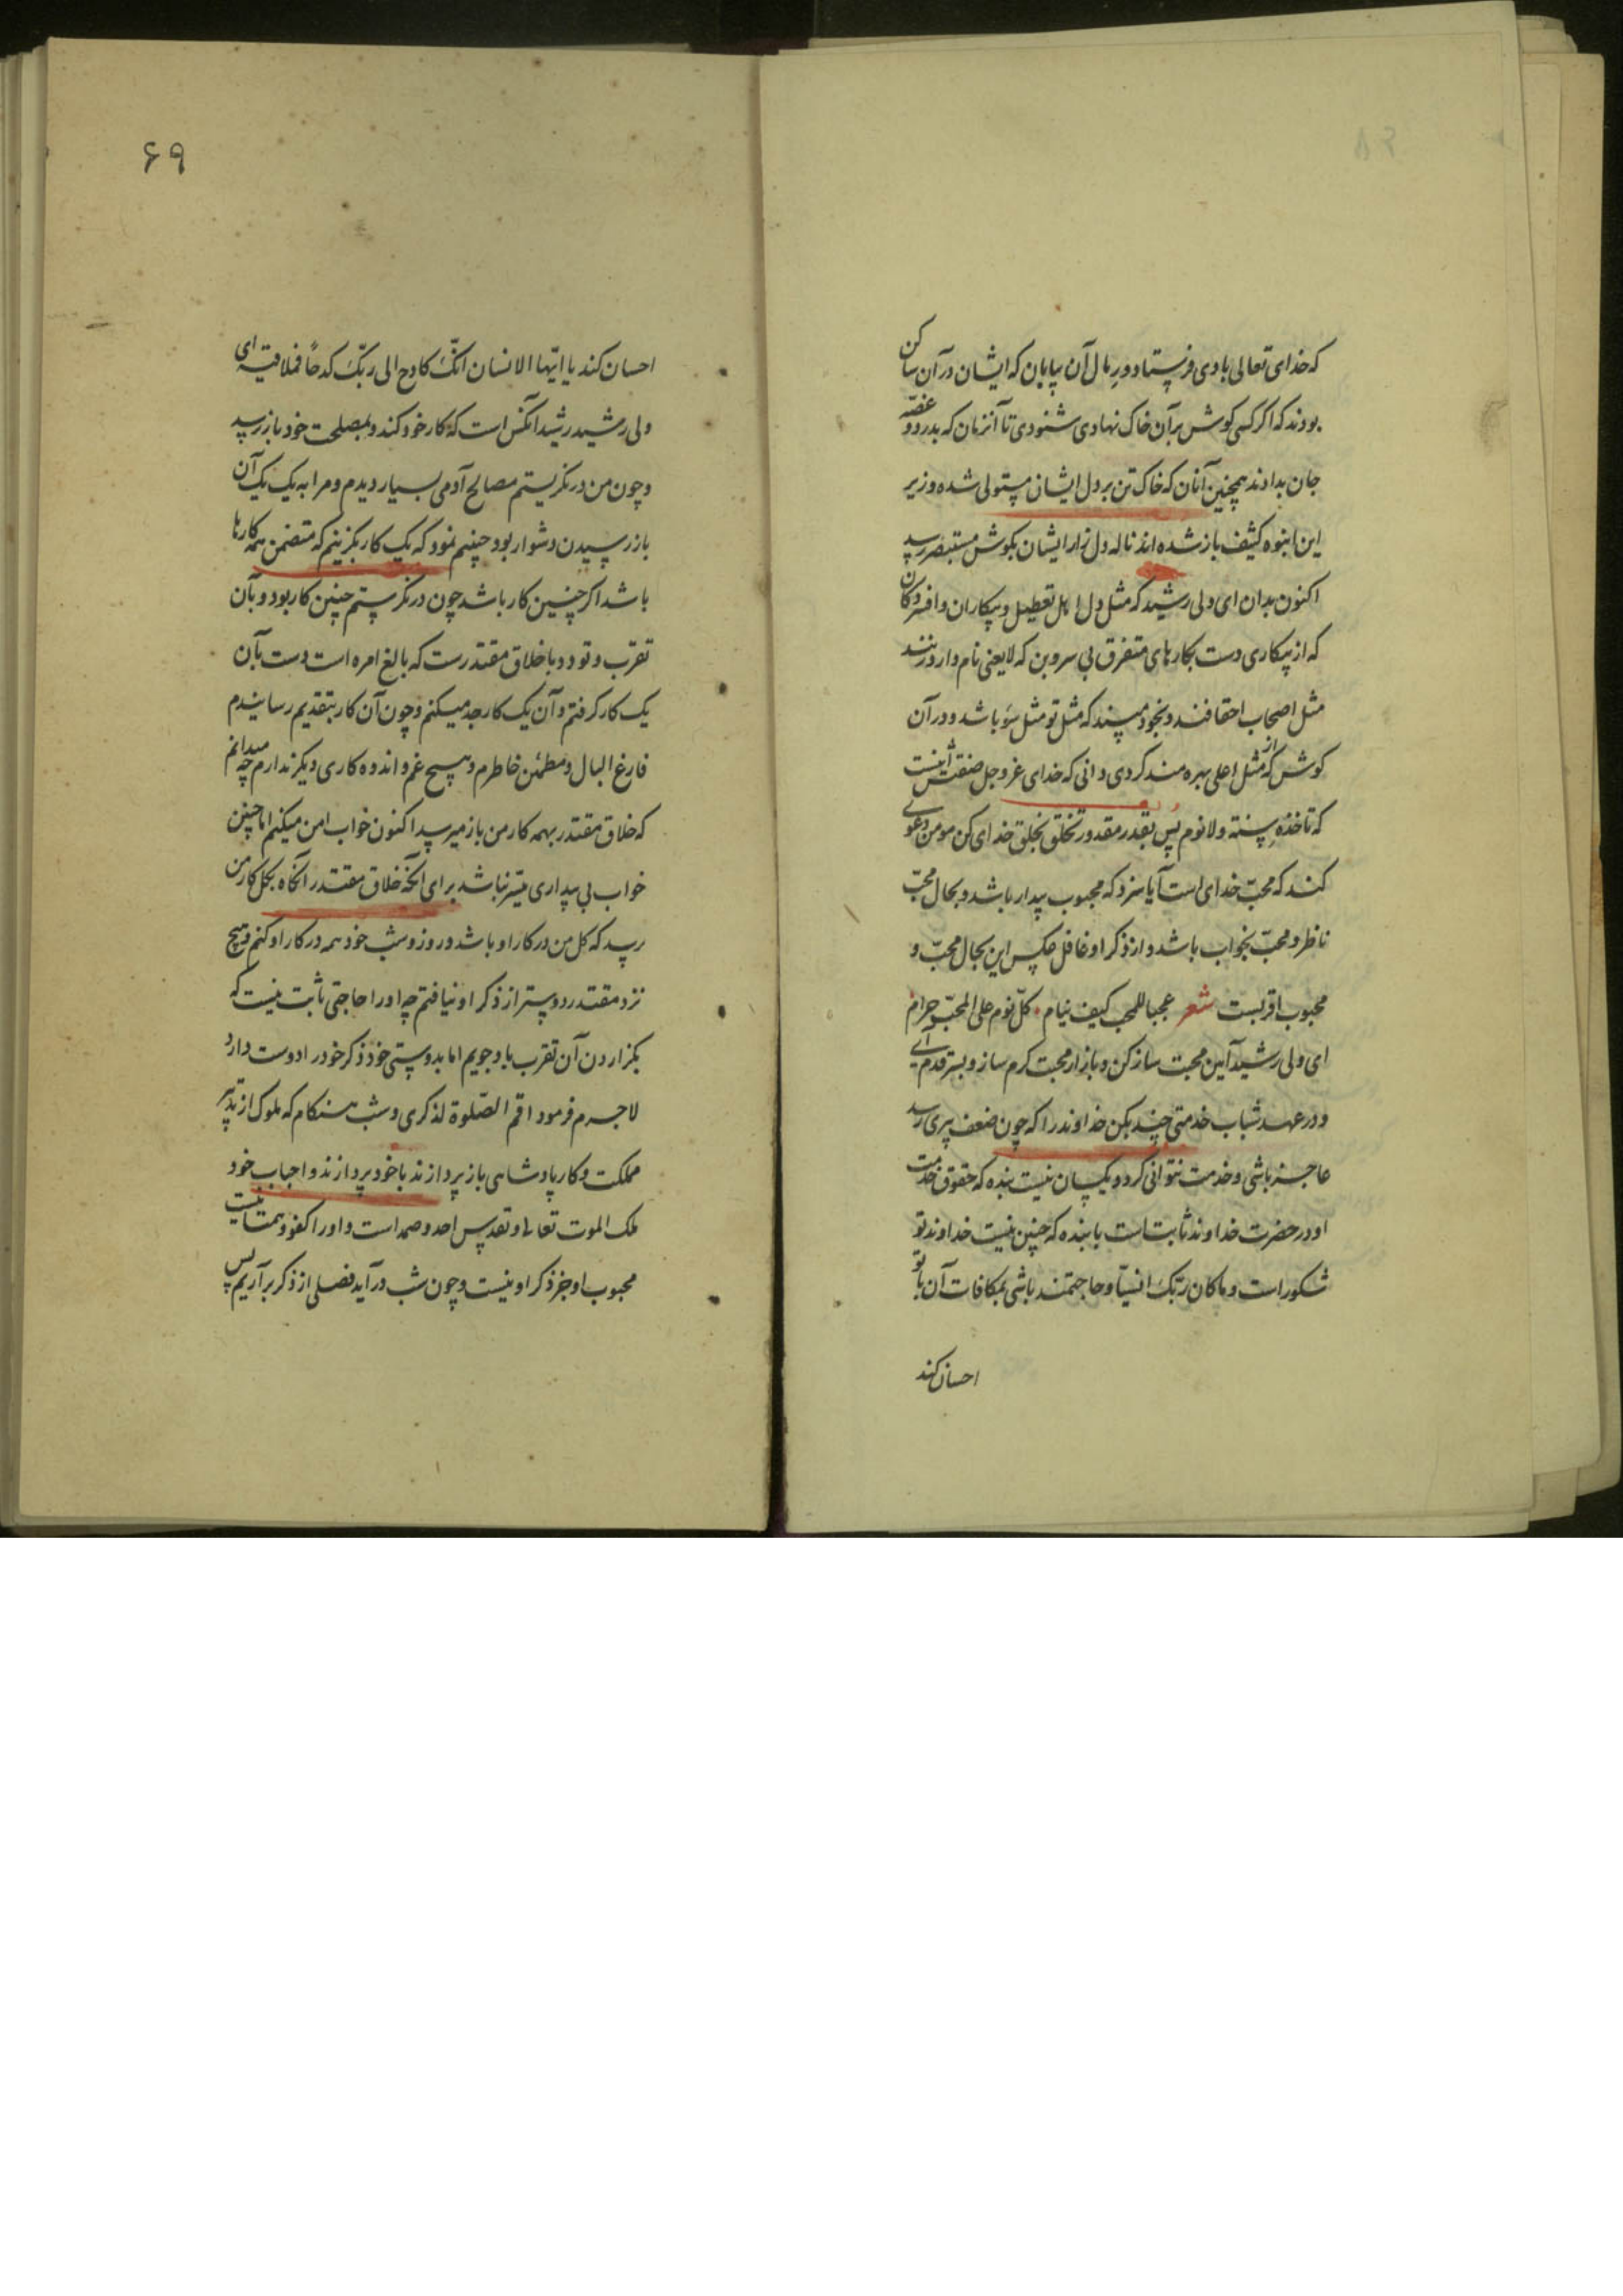 که خدای تعالی بادی فرستاد و رمال آن بیابان که ایشان در آن ساکن
بودند که اگر کسی گوش بر آن خاک نهادی شنودی تا آنزمان که بدرد و غصّه
جان بدادند همچنین آنان که خاک تن بر دل ایشان مستولی شده و زیر
این انبوه کثیف باز شده‌اند ناله دل زار ایشان بگوش مستبصر رسد
اکنون بدان ای ولی رشید که مثل دل اهل تعطیل و بیکاران و افسردگان
که از بیکاری دست بکارهای متفرق بی سر و بن که لا یعنی نام دارد زنند
مثل اصحاب احقافند و بخود مپسند که مثل تو مثل سَوء باشد و در آن
کوش که از مثل اعلی بهره‌مند گردی دانی که خدای عزوجل صفتش اینست
که تاخذه سنة ولا نوم پس بقدر مقدور تخلّق بخلق خدای کن مومن دعوی
کند که محبّ خدای است آیا سزد که محبوب بیدار باشد و بحال محبّ
ناظر و محبّ بخواب باشد و از ذکر او غافل عکس این بحال محبّ و
محبوب اقربست شعر عجبا للمحب کیف ینام کلّ نوم علی المحبّ حرام
ای ولی رشید آیین محبت ساز کن و بازار محبت گرم ساز و بسر قدم آی
و در عهد شباب خدمتی چند بکن خداوند را که چون ضعف پیری رسد
عاجز باشی و خدمت نتوانی کرد و یکسان نیست بنده که حقوق خدمت
او در حضرت خداوند ثابتست با بنده که چنین نیست خداوند تو
شکور است و ما کان ربّک انسیّاً و حاجتمند باشی بمکافات آن با تو
احسان کند
۶۹
احسان کند یا ایّها الانسان انّک کادح الی ربّک کدحاً فملاقیه ای
ولی رشید رشید آنکس است که کار خود کند و بمصلحت خود باز رسد
و چون من در نگریستم مصالح آدمی بسیار دیدم و مرا به یک یک آن
باز رسیدن دشوار بود چنینم نمود که یک کار بگزینم که متضمن همه کارها
باشد اگر چنین کار باشد چون در نگرستم چنین کار بود و آن
تقرّب و تودد با خلاق مقتدرست که بالغ امره است دست بآن
یک کار گرفتم و آن یک کار جد میکنم و چون آن کار بتقدیم رسانیدم
فارغ البال و مطمئن خاطرم و هیچ غم و اندوه کاری دیگر ندارم چه میدانم
که خلاق مقتدر بهمه کار من باز میرسد اکنون خواب امن میکنم اما چنین
خواب بی بیداری میّسر نباشد برای آنکه خلاق مقتدر آنگاه بکل کار من
رسد که کل من در کار او باشد و روز و شب خود همه در کار او کنم و هیچ
نزد مقتدر دوستر از ذکر او نیافتم چه او را حاجتی ثابت نیست که
بگزاردن آن تقرب باو جویم اما بدوستی خود ذکر خود را دوست دارد
لاجرم فرمود اقم الصّلوة لذکری و شب هنگام که ملوک از تدبیر
مملکت و کار پادشاهی باز پردازند با خود پردازند و احباب خود
ملک الموت تعالی و تقدیس احد و صمد است و او را کفو و همتا نیست
محبوب او جز ذکر او نیست و چون شب درآید فصلی از ذکر برآریم پس